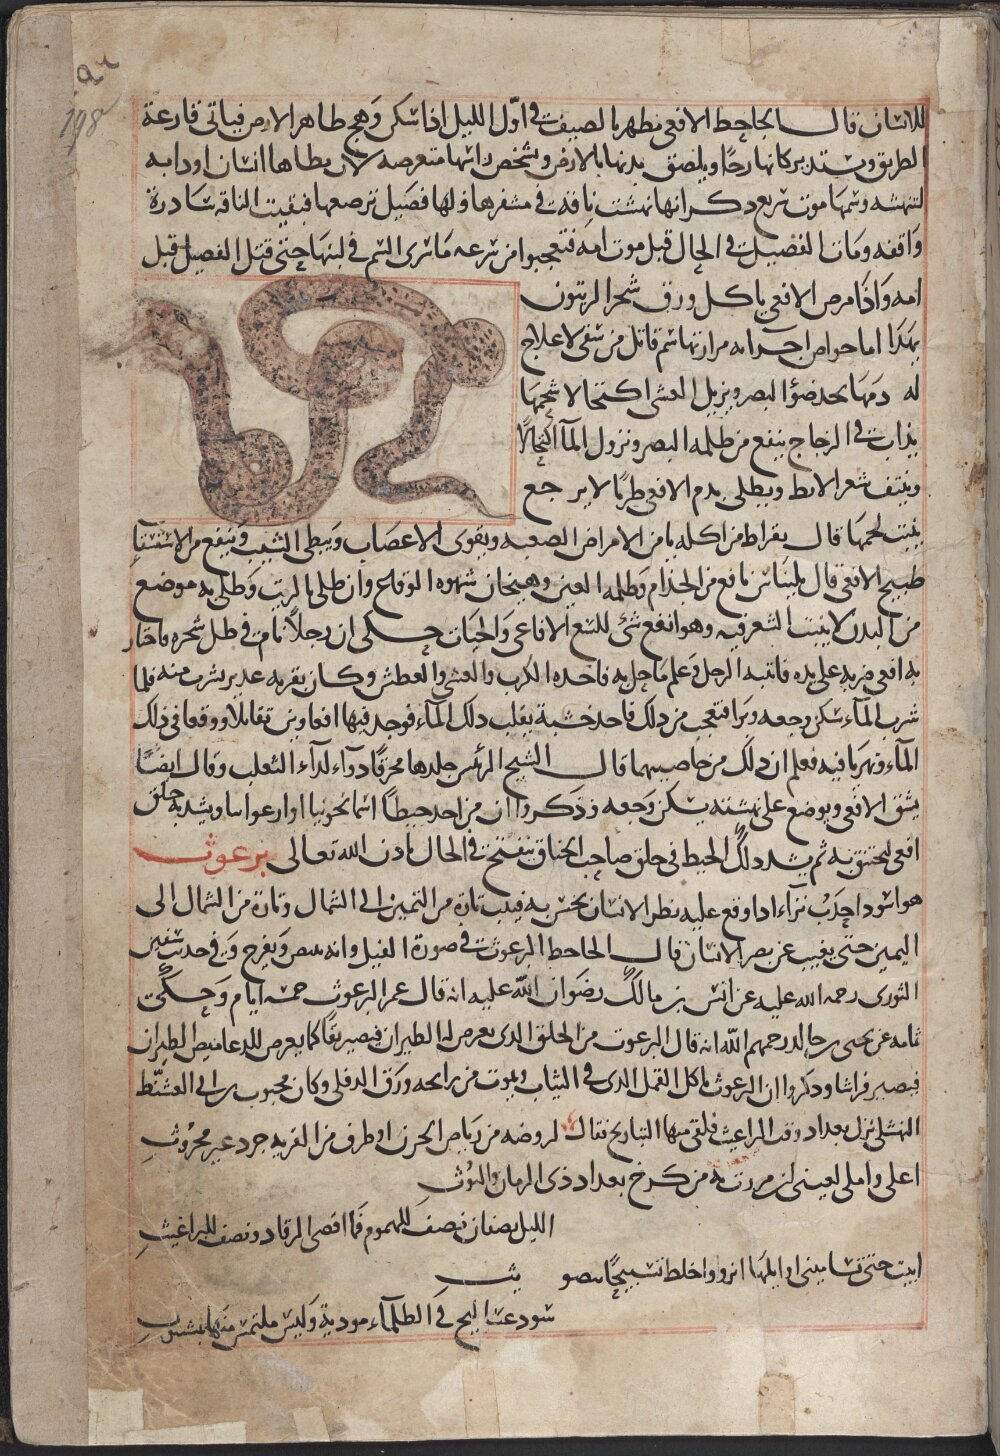 198
للانسان قال الجاحظ الافعى يظهر بالصيف فى اوّل الليل اذا سكن وَهج ظاهر الارض فياتى قارعة
الطريق ويستدير كانها رحًا ويلصق بدنها بالارض ويشخص راسها متعرضه لان يطاها انسان او دابه
لتنهشه وسمها موت سريع ذكر انها نهشت ناقة فى مشفرها ولها فصيل ترضعها فبقيت الناقه سادرة
واقفه ومات الفصيل فى الحال قبل موت امه فتعجبوا من سرعه ما سرى السم فى لبنها حتى قتل الفصيل قبل
امه وَاذا مرض الافعى ياكل ورق شجر الزيتون
يهدَا اما خواص اجزائه مرارتها سم قاتل من سقى لا علاج
له دمها يحد ضوُ البصر ويزيل العشى اكتحالا شحمها
يذاب فى الزجاج ينفع من ظلمه البصر ونزول المآ اكتحالًا
وينتف شعر الابط ويطلى بدم الافعى طريًا لا يرجع
ينبت لحمها قال بقراط من اكله يامن الامراض الصعبه ويقوى الاعصاب ويبطى الشيب وينفع من الاستسقا
طبيخ الافعى قال بليناس نافع من الجذام وظلمه العين وهيجان شهوه الوقاع وان طلى بالزيت وطلى به موضع
من البدن لا ينبت الشعر فيه وهو انفع شئ للسع الافاعى وَالحيات حكى ان رجلاً نام فى ظل شجره فاختار
به افعى ضربه على يده فانتبه الرجل وَعلم ما حل به فاخذه الكرب والغشى والعطش وكان بقربه غدير شرب منه فلما
شرب المآء سكن وجعه وبَرا فتعجب من ذلك فاخذ خشبة يقلب ذلك المآء فوجد فيها افعاوين تقابلا ووقعا فى ذلك
المآء وتهريا فيه فعلم ان ذلك من خاصيتهما قال الشيخ الرئيس جلدها محرقًا دوآء لدآء الثعلب وقال ايضًا
يشق الافعى ويوضع على نهشته يسكن وجعه وذكروا ان من اخذ خيطًا اسمانجونيا او ارغوانيا ويشد به حلق
افعى ليختنق به ثم يشد ذلك الخيط فى حلق صاحب الخناق ينفتح فى الحال باذن الله تعالى برغوث
هو اسود احدب نزآء اذا وقع عليه نظر الانسان يحس به فيثب تارة من اليمين الى الشمال وتارة من الشمال الى
اليمين حتى يغيب عن بصر الانسان قال الجاحظ البرغوث فى صورة الفيل وانه يبيض ويفرخ وَفى حديث سفين
الثورى رحمه الله عليه عن انس بن مالك رضوان الله عليه انه قال عمر البرغوث خمسه ايام وَحكى
ثمامه عن يحيى بن خالد رحمهم الله انه قال البرغوت من الخلق الذى يعرض له الطيران فيصير بقًا كما يعرض للدعاميص الطيران
فيصير فراشا وذكروا ان البرغوث ياكل القمل الذى فى الثياب ويموت من رائحه ورق الدفلى وكان محبوب بن ابى العشنّط
النهشلى نزل بغداد وقت البراغيث فلقى منها التباريح فقال لروضه من رياض الحزن او طرف من القريه جرد غير محروث
اعلى واملى لعينى ان مررت به من كرخ بغداد ذى الرمان والتوث
الليل نصفان نصف للهموم فما اقضى الرقاد ونصف للبراغيث
ابيت حتى تسامينى اوايلها انزو واخلط تسبيحًا بتغويث
سود عنا ليج فى الظلمآء موذية وليس ملتمس منها بمشبوث